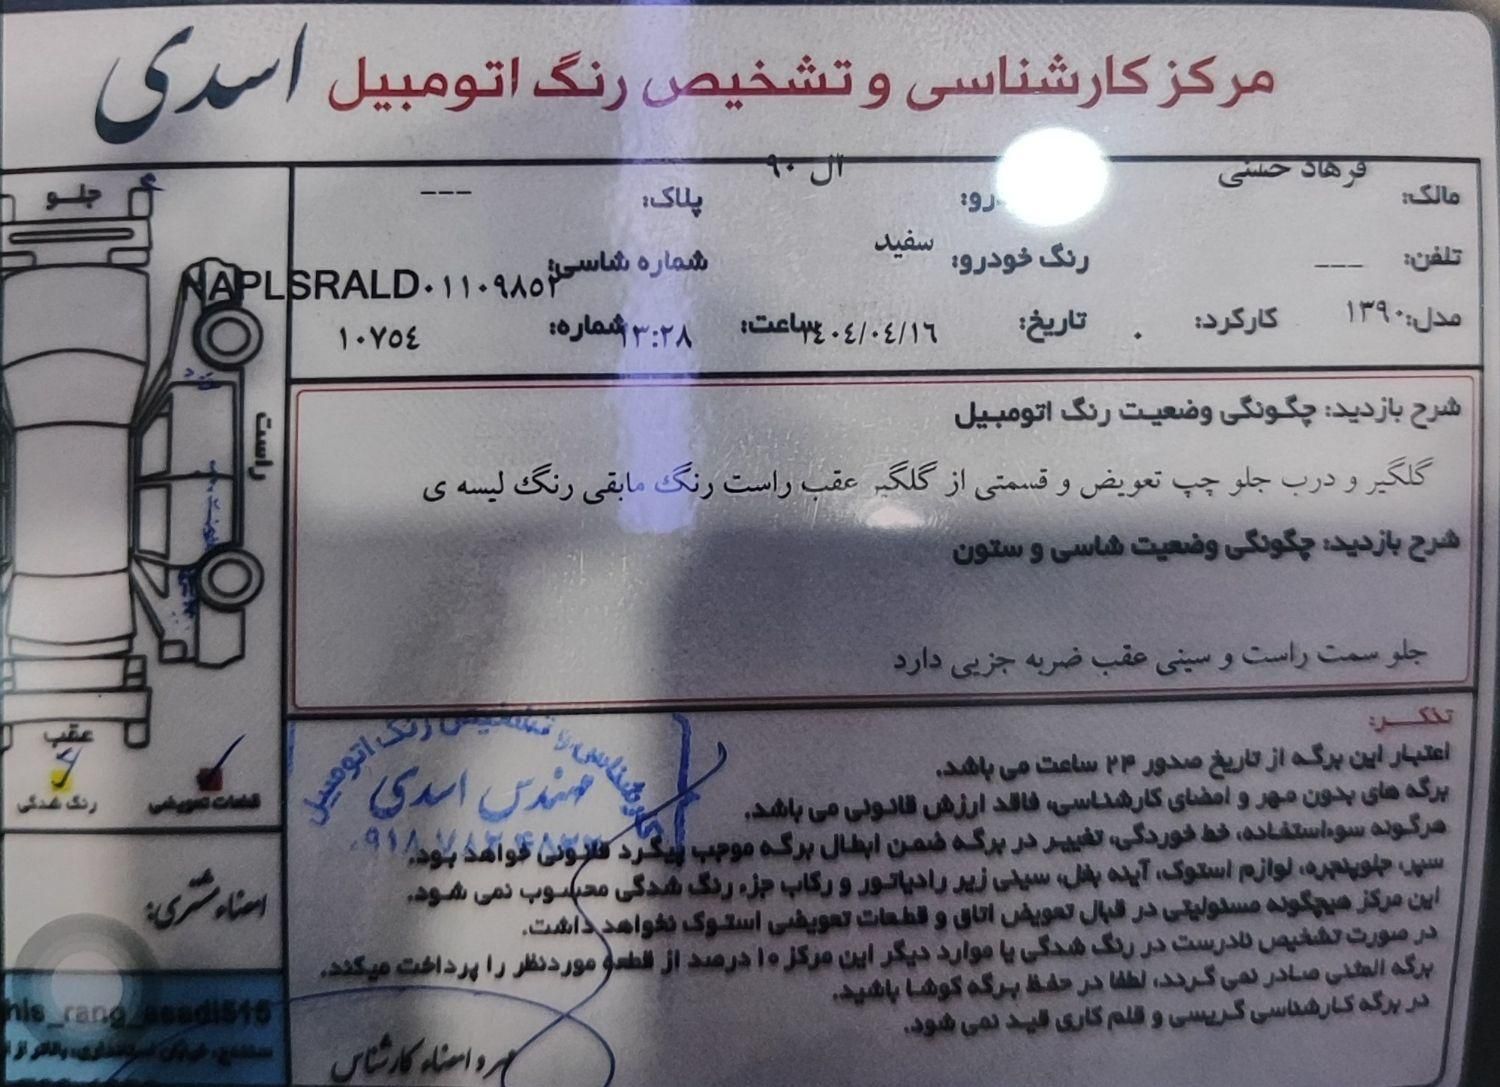 مرکز کارشناسی و تشخیص رنگ اتومبیل اسدی
مالک: فرهاد حسنی
درو: ال ۹۰
پلاک: ---
تلفن: ---
رنگ خودرو: سفید
شماره شاسی: NAPLSRALD۰۱۱۰۹۸۵۲
مدل: ۱۳۹۰
کارکرد: ۰
تاریخ: ۱٤۰٤/۰٤/۱٦
ساعت: ۱۳:۲۸
شماره: ۱۰۷۵٤
شرح بازدید: چگونگی وضعیت رنگ اتومبیل
گلگیر و درب جلو چپ تعویض و قسمتی از گلگیر عقب راست رنگ مابقی رنگ لیسه ی
شرح بازدید: چگونگی وضعیت شاسی و ستون
جلو سمت راست و سینی عقب ضربه جزیی دارد
تذکر:
اعتبار این برگه از تاریخ صدور ۲۴ ساعت می باشد.
برگه های بدون مهر و امضای کارشناسی، فاقد ارزش قانونی می باشد.
هرگونه سوءاستفاده، خط خوردگی، تغییر در برگه ضمن ابطال برگه موجب پیگرد قانونی خواهد بود.
سپر، جلوپنجره، لوازم استوک، آینه بغل، سینی زیر رادیاتور و رکاب جزء رنگ شدگی محسوب نمی شود.
این مرکز هیچگونه مسئولیتی در قبال تعویض اتاق و قطعات تعویضی استوک نخواهد داشت.
در صورت تشخیص نادرست در رنگ شدگی یا موارد دیگر این مرکز ۱۰ درصد از قطعه موردنظر را پرداخت میکند.
برگه المثنی صادر نمی گردد، لطفا در حفظ برگه کوشا باشید.
در برگه کارشناسی گریسی و قلم کاری قید نمی شود.
مهر و امضاء کارشناس
کارشناسی و تشخیص رنگ اتومبیل
مهندس اسدی
جلو
راست
عقب
قطعات تعویضی
رنگ شدگی
امضاء مشتری:
his_rang_asadi515
سنندج، خیابان استانداری، بالاتر از